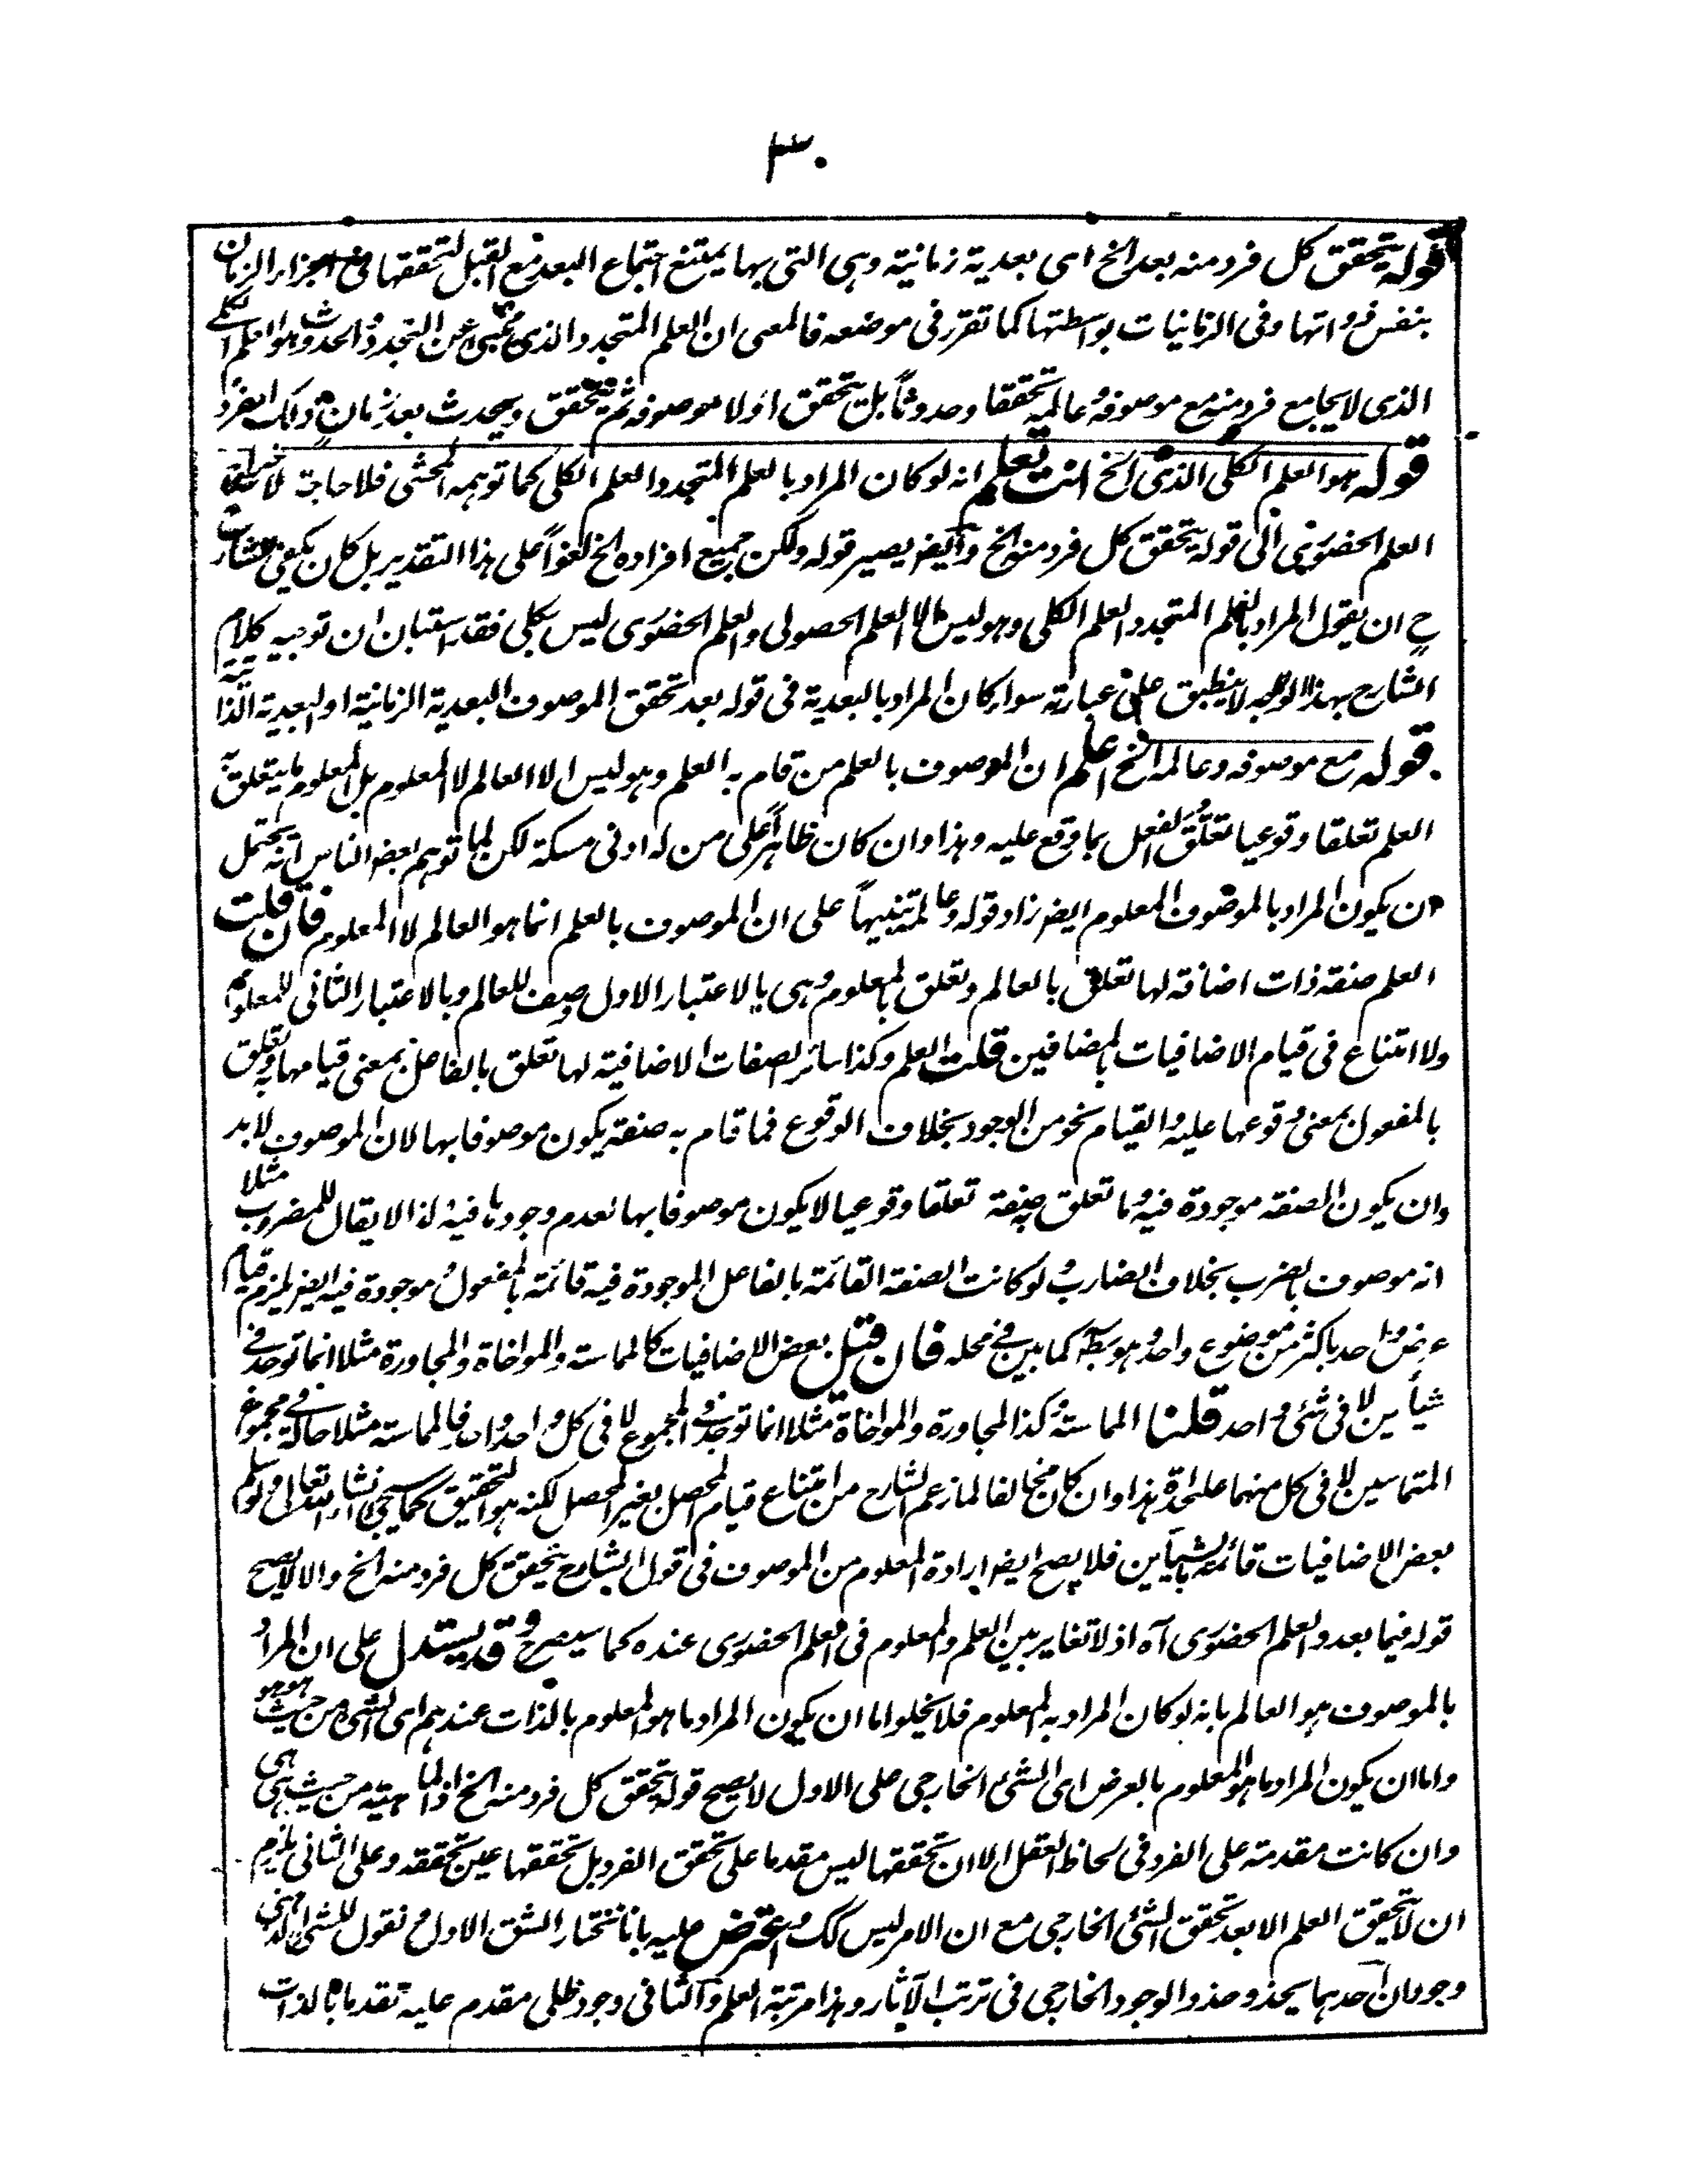 ٣٠
قوله يتحقق كل فرد منه بعد الخ اى بعدية زمانية وهى التى بها يمتنع اجتماع البعد مع القبل لتحققها فى اجزاء الزمان
بنفس ذواتها وفى الزمانيات بواسطتها كما تقرر فى موضعه فالمعنى ان العلم المتجدد الذى ينبئ عن التجدد والحدوث هو العلم الكلى
الذى لا يجامع فرد منه مع موصوفه وعالمه تحققا وحدوثاً بل يتحقق اولا موصوفه ثم يتحقق ويحدث بعد زمان ذلك الفرد
قوله هو العلم الكلى الذى الخ انت تعلم انه لو كان المراد بالعلم المتجدد العلم الكلى كما توهمه المحشى فلا حاجة لاخراج
العلم الحضورى الى قوله يتحقق كل فرد منه الخ وايضا يصير قوله ولكن جميع افراده الخ لغواً على هذا التقدير بل كان يكفى للشارح
ح ان يقول المراد بالعلم المتجدد العلم الكلى وهو ليس الا العلم الحصولى والعلم الحضورى ليس بكلى فقد استبان ان توجيه كلام
الشارح بهذا الوجه لا ينطبق على عبارته سواء كان المراد بالبعدية فى قوله بعد تحقق الموصوف البعدية الزمانية او البعدية الذاتية
قوله مع موصوفه وعالمه الخ اعلم ان الموصوف بالعلم من قام به العلم وهو ليس الا العالم لا المعلوم بل المعلوم ما يتعلق به
العلم تعلقا وقوعيا تعلق الفعل بما وقع عليه وهذا وان كان ظاهراً على من له ادنى مسكة لكن لما توهم بعض الناس انه يحتمل
ان يكون المراد بالموصوف المعلوم ايضا زاد قوله وعالمه تنبيهاً على ان الموصوف بالعلم انما هو العالم لا المعلوم فان قلت
العلم صفة ذات اضافة لها تعلق بالعالم وتعلق بالمعلوم وهى بالاعتبار الاول وصف للعالم وبالاعتبار الثانى للمعلوم
ولا امتناع فى قيام الاضافيات بالمضافين قلت العلم وكذا سائر الصفات الاضافية لها تعلق بالفاعل بمعنى قيامها به وتعلق
بالمفعول بمعنى وقوعها عليه والقيام نحو من الوجود بخلاف الوقوع فما قام به صفة يكون موصوفا بها لان الموصوف لا بد
وان يكون الصفة موجودة فيه وما تعلق به صفة تعلقا وقوعيا لا يكون موصوفا بها لعدم وجودها فيه لذا لا يقال للمضروب مثلا
انه موصوف بالضرب بخلاف الضارب ولو كانت الصفة القائمة بالفاعل الموجودة فيه قائمة بالمفعول وموجودة فيه ايضا يلزم قيام
عرض واحد باكثر من موضوع واحد وهو باطل كما بين فى محله فان قيل بعض الاضافيات كالمماسة والمواخاة والمجاورة مثلا انما توجد فى
شيأين لا فى شئ واحد قلنا المماسة وكذا المجاورة والمواخاة مثلا انما توجد فى المجموع لا فى كل واحد واحد فالمماسة مثلا حالة فى مجموع
المتماسين لا فى كل منهما على حدة هذا وان كان مخالفا لما زعم الشارح من امتناع قيام المحصل بغير المحصل لكنه هو التحقيق كما سيجئ انشاء الله تعالى ولو سلم
بعض الاضافيات قائمة بالشيأين فلا يصح ايضا ارادة المعلوم من الموصوف فى قول الشارح يتحقق كل فرد منه الخ والا لا يصح
قوله فيما بعد والعلم الحضورى آه اذ لا تغاير بين العلم والمعلوم فى العلم الحضورى عنده كما سيصرح وقد يستدل على ان المراد
بالموصوف هو العالم بانه لو كان المراد به المعلوم فلا يخلو اما ان يكون المراد ما هو المعلوم بالذات عندهم اى الشئ من حيث هو هو
واما ان يكون المراد ما هو المعلوم بالعرض اى الشئ الخارجى على الاول لا يصح قوله يتحقق كل فرد منه الخ اذ الماهية من حيث هى هى
وان كانت مقدمة على الفرد فى لحاظ العقل الا ان تحققها ليس مقدما على تحقق الفرد بل تحققها عين تحققه وعلى الثانى يلزم
ان لا يتحقق العلم الا بعد تحقق الشئ الخارجى مع ان الامر ليس كك واعترض عليه بانا نختار الشق الاول ونقول للشئ الذهنى
وجودان احدهما يحذو حذو الوجود الخارجى فى ترتب الآثار وهذا مرتبة العلم والثانى وجود ظلى مقدم عليه تقدما بالذات